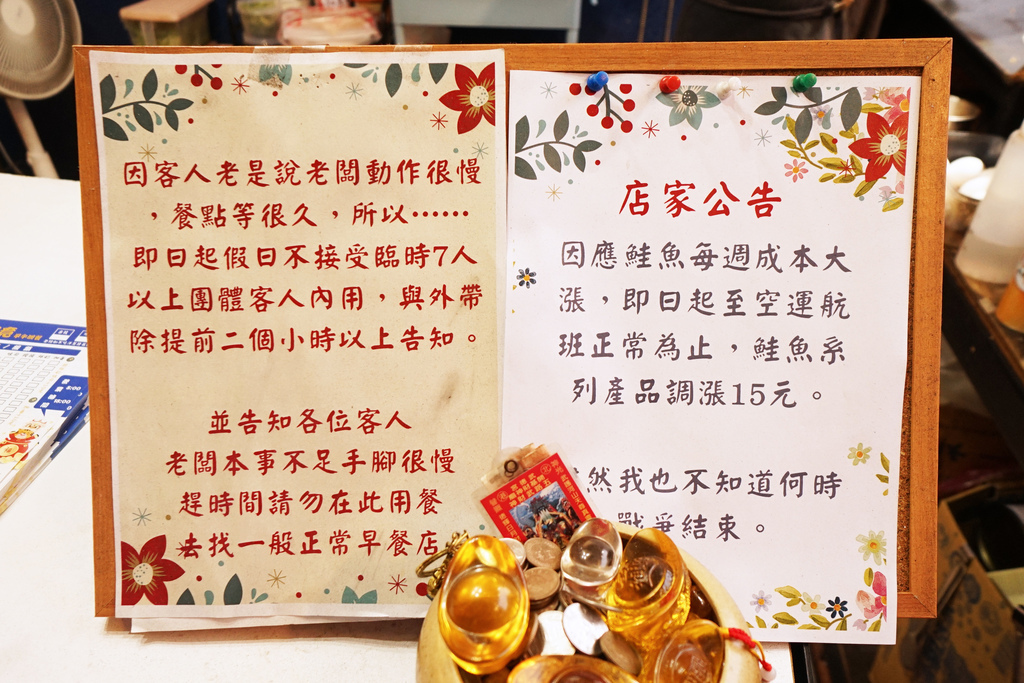 因客人老是說老闆動作很慢
，餐點等很久，所以⋯⋯
即日起假日不接受臨時7人
以上團體客人內用，與外帶
除提前二個小時以上告知。
並告知各位客人
老闆本事不足手腳很慢
趕時間請勿在此用餐
去找一般正常早餐店
店家公告
因應鮭魚每週成本大
漲，即日起至空運航
班正常為止，鮭魚系
列產品調漲15元。
然我也不知道何時
戰爭結束。